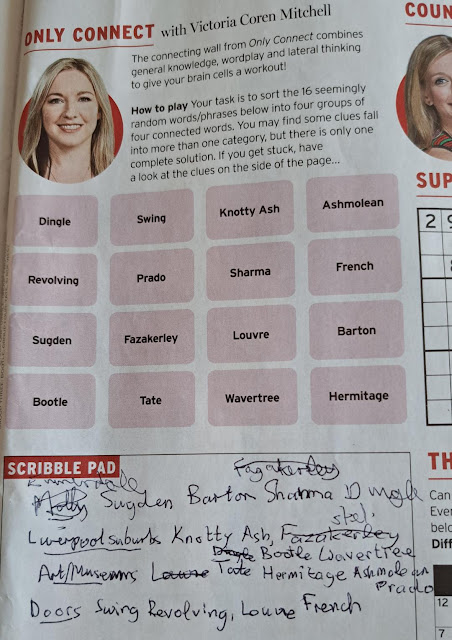 ONLY CONNECT with Victoria Coren Mitchell
COUN
The connecting wall from Only Connect combines
general knowledge, wordplay and lateral thinking
to give your brain cells a workout!
How to play Your task is to sort the 16 seemingly
random words/phrases below into four groups of
four connected words. You may find some clues fall
into more than one category, but there is only one
complete solution. If you get stuck, have
a look at the clues on the side of the page...
SUP
Dingle Swing Knotty Ash Ashmolean
2 9
Revolving Prado Sharma French
Sugden Fazakerley Louvre Barton
Bootle Tate Wavertree Hermitage
SCRIBBLE PAD
TH
Can
Ever
belo
Diff
Emmerdale Fazakerley
Molly Sugden Barton Sharma Dingle
Liverpool suburbs Knotty Ash, Fazakerley
Dingle Bootle Wavertree
Art/Museums Louvre Tate Hermitage Ashmolean
Prado
Doors Swing Revolving, Louvre French
12
7